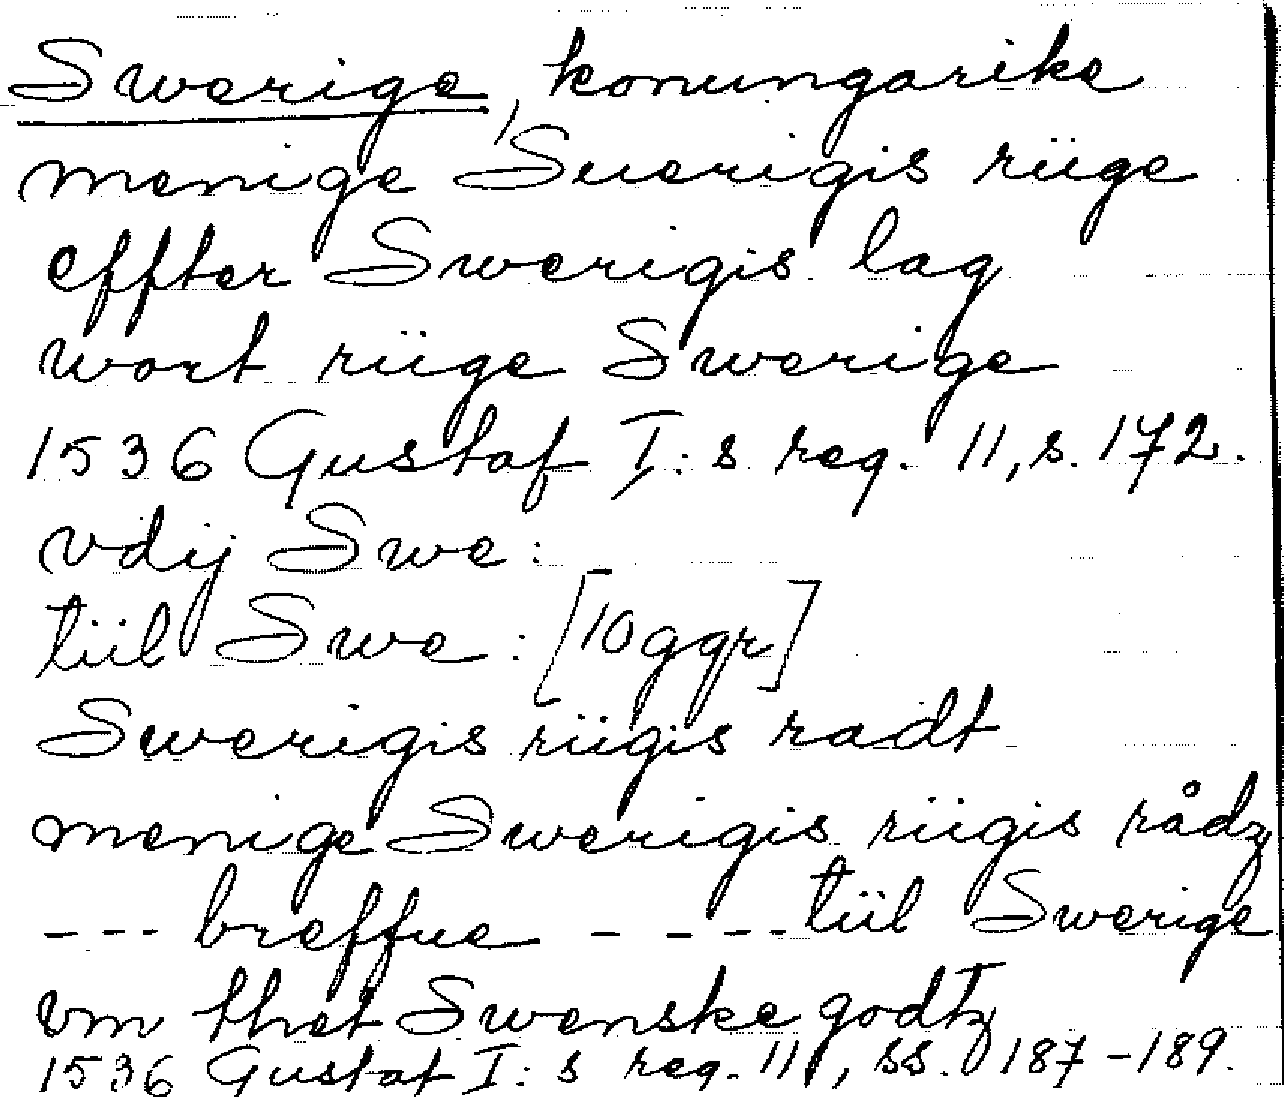 Swerige, konungarike
menige Suerigis riige
effter Swerigis lag
wort riige Swerige
1536 Gustaf I:s reg. 11, s. 172.
vdij Swe:
tiil Swe: [10 ggr]
Swerigis riigis radt
menige Swerigis riigis rådz
--- breffue ---- tiil Swerige
vm thet Swenske godtz
1536 Gustaf I:s reg. 11, ss. 187-189.